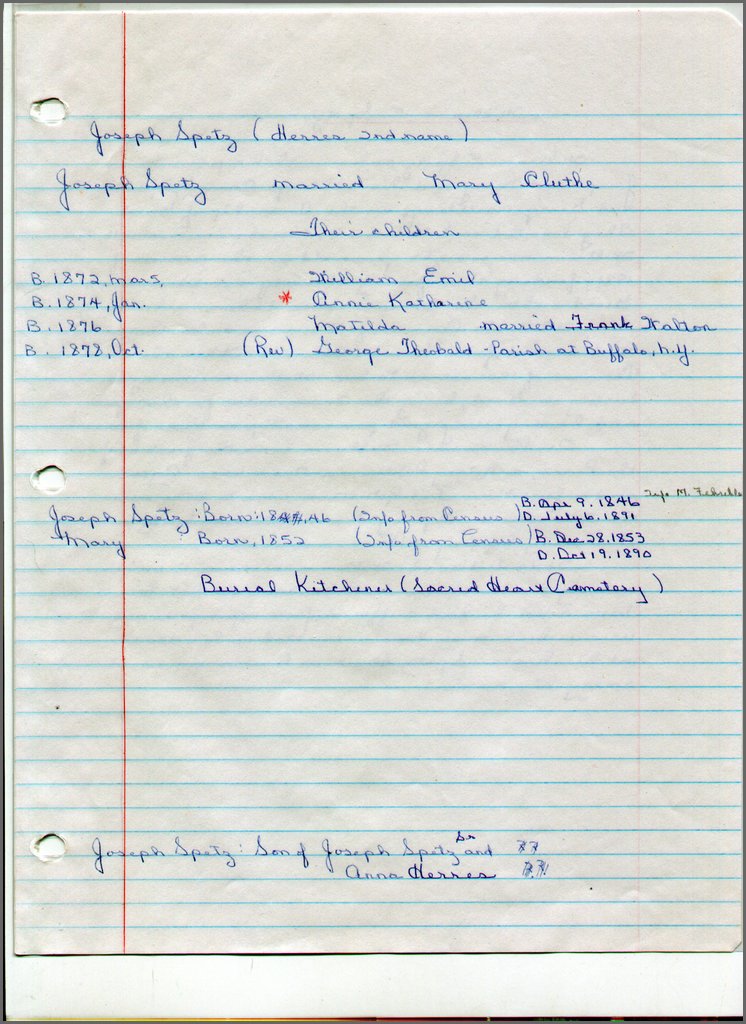 Joseph Spetz (Herres 2nd name)
Joseph Spetz married Mary Cluthe
Their children
B. 1872, Mar 5, William Emil
B. 1874, Jan. * Annie Katharine
B. 1876 Matilda married Frank Walton
B. 1878, Oct. (Rev) George Theobald - Parish at Buffalo, N.Y.
Info M.
B. Apr 9. 1846
Joseph Spetz : Born: 1847, 46 (Info from Census) D. July 6. 1891
Mary Born, 1852 (Info from Census) B. Dec 28. 1853
D. Oct 19. 1890
Burial Kitchener (Sacred Heart Cemetery)
Joseph Spetz: Son of Joseph Spetz Sr and
Anna Herres